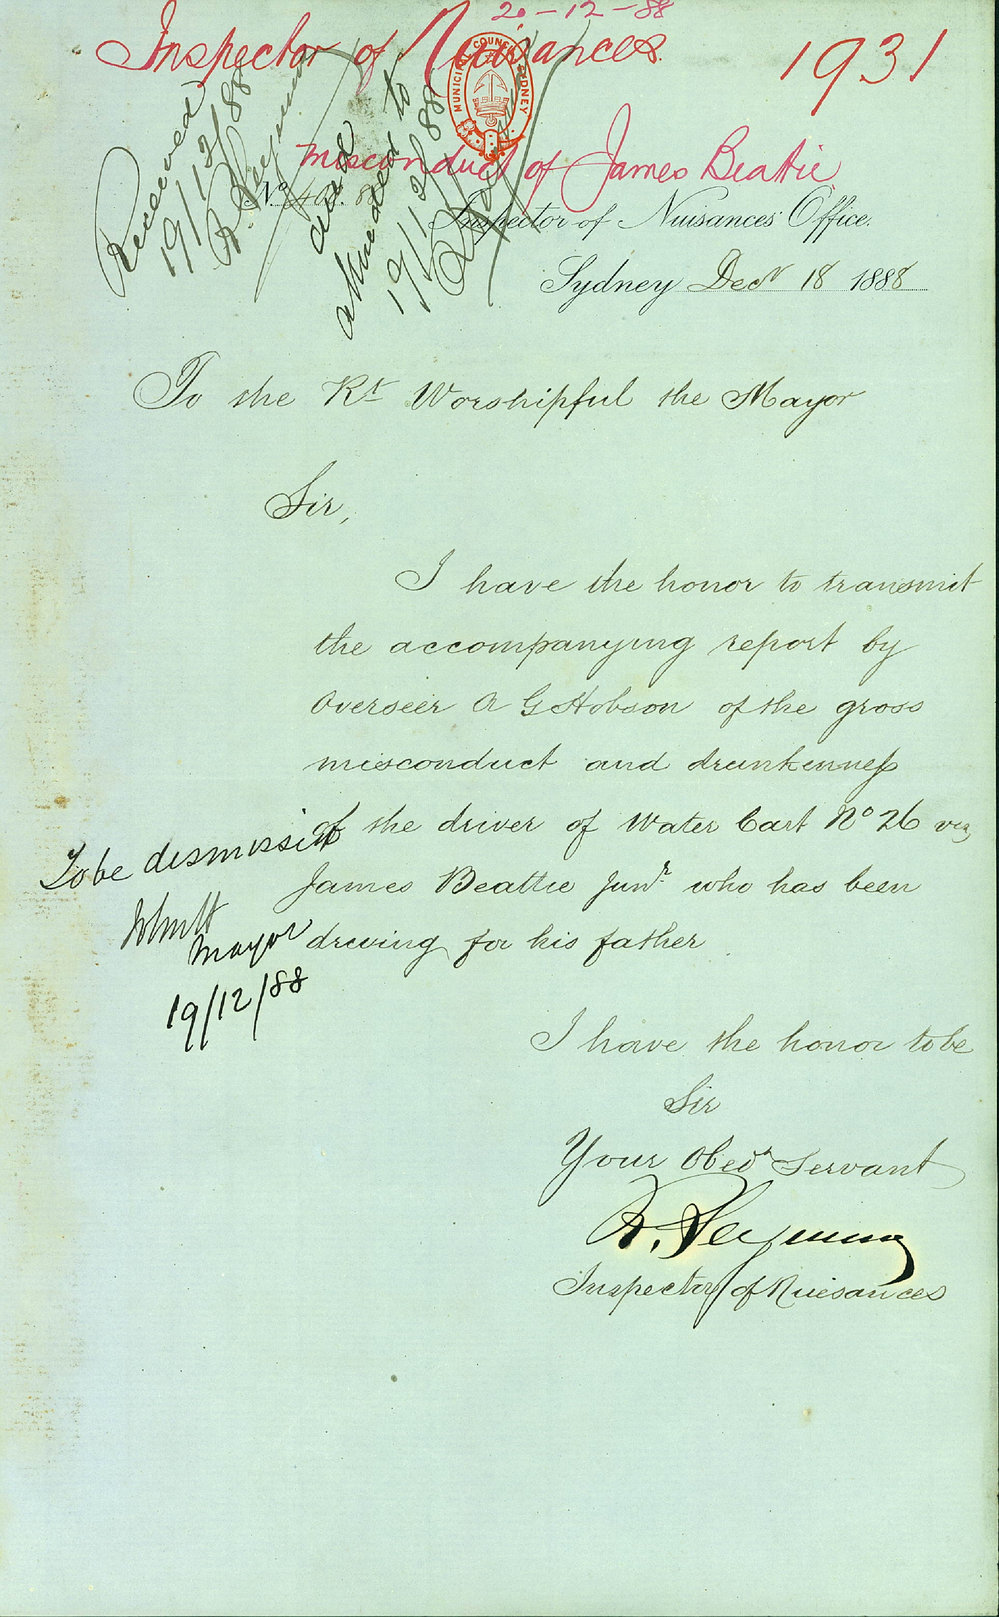 20-12-88
Inspector of Nuisances.
1931
MUNICIPAL COUNCIL SYDNEY
misconduct of James Beattie
Received
19/12/88
R. Seymour
and
attended to
19/12/88
No
88
Inspector of Nuisances' Office.
Sydney Decr 18 1888
To the Rt Worshipful the Mayor
Sir,
I have the honor to transmit
the accompanying report by
Overseer A G Hobson of the gross
misconduct and drunkenness
of the driver of Water Cart No 26 viz
James Beattie Junr who has been
driving for his father
To be dismissed
Mayor
19/12/88
I have the honor to be
Sir
Your Obedt Servant
R. Seymour
Inspector of Nuisances